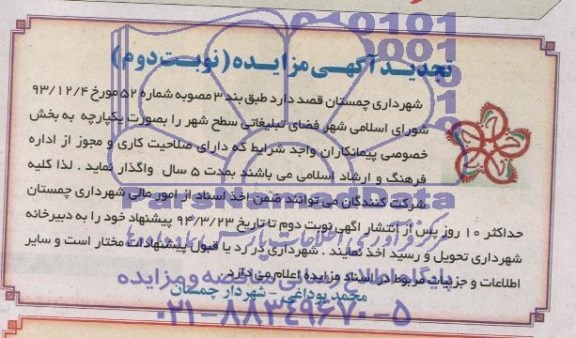 تجدید آگهی مزایده (نوبت دوم)
شهرداری چمستان قصد دارد طبق بند ۳ مصوبه شماره ۵۲ مورخ ۹۳/۱۲/۴
شورای اسلامی شهر فضای تبلیغاتی سطح شهر را بصورت یکپارچه به بخش
خصوصی پیمانکاران واجد شرایط که دارای صلاحیت کاری و مجوز از اداره
فرهنگ و ارشاد اسلامی می باشند بمدت ۵ سال واگذار نماید . لذا کلیه
شرکت کنندگان می توانند ضمن اخذ اسناد از امور مالی شهرداری چمستان
حداکثر ۱۰ روز پس از انتشار آگهی نوبت دوم تا تاریخ ۹۴/۳/۲۳ پیشنهاد خود را به دبیرخانه
شهرداری تحویل و رسید اخذ نمایند . شهرداری در رد یا قبول پیشنهادات مختار است و سایر
اطلاعات و جزییات مربوط در اسناد مزایده اعلام می دارد
محمد یوداغی - شهردار چمستان
ParsNamadData
پایگاه اطلاع رسانی مناقصه و مزایده
۰۲۱-۸۸۳۴۹۶۷۰-۵